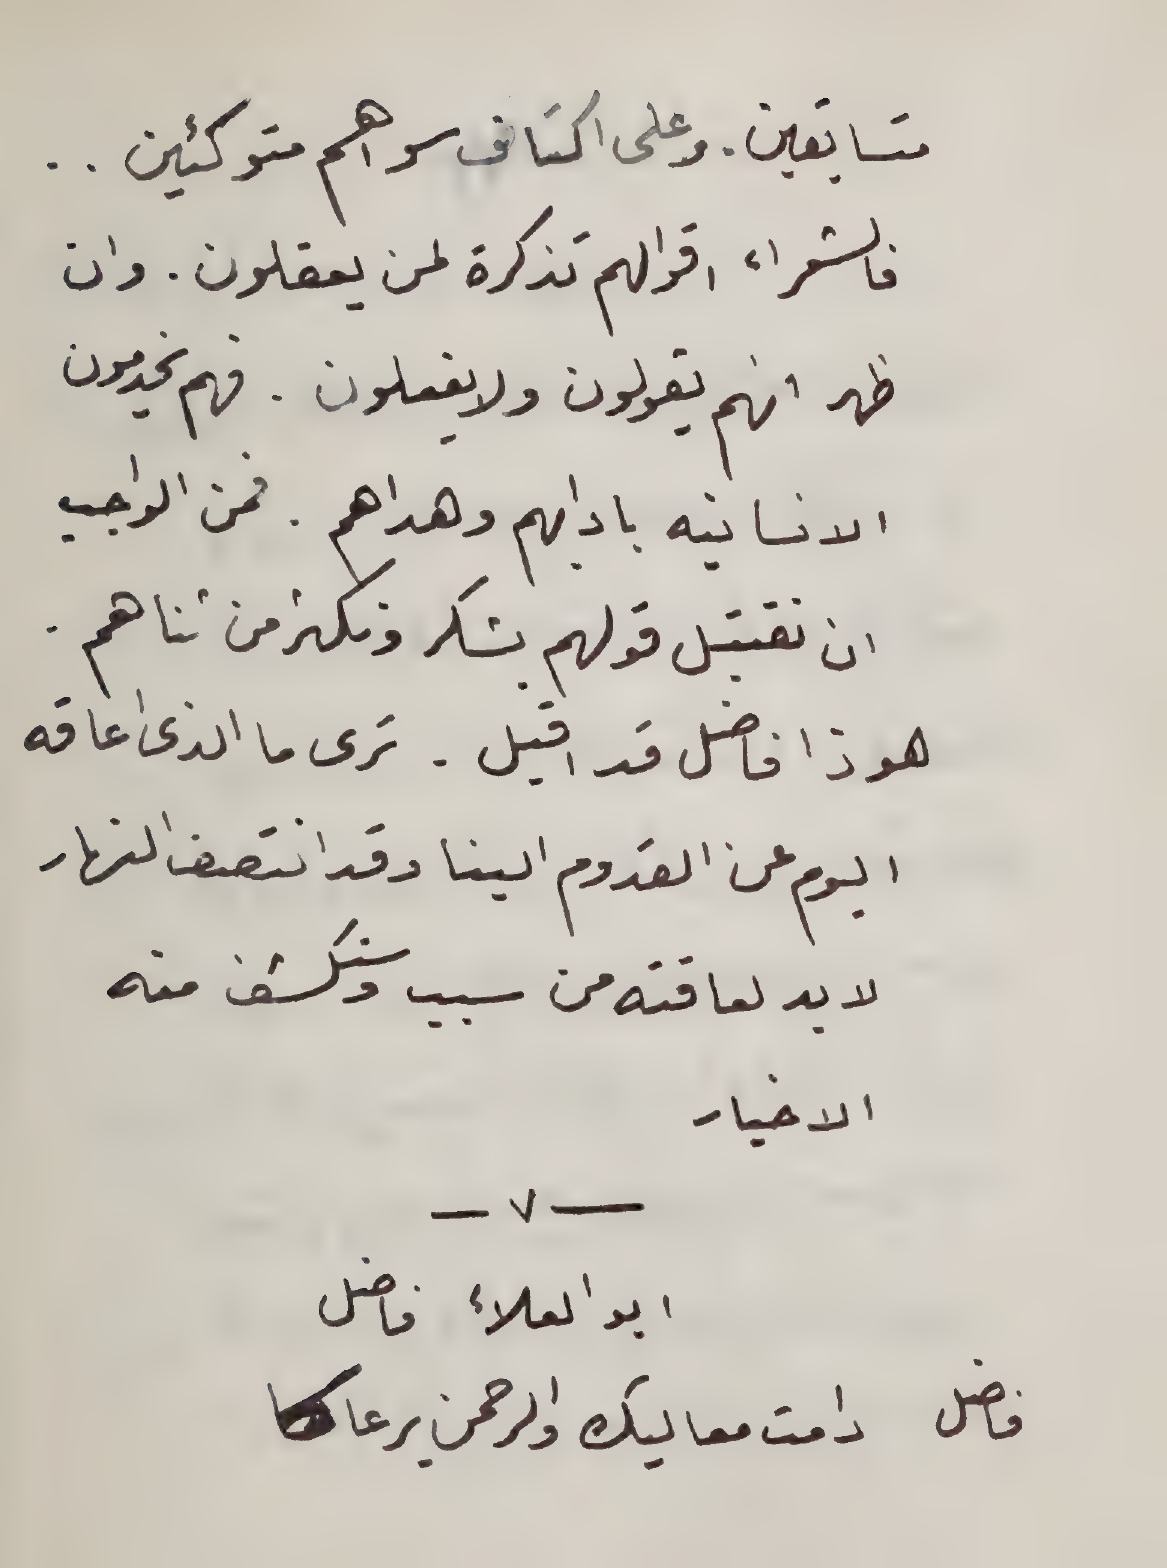 متسابقين. وعلى اكتاف سواهم متوكئين . .
فالشعراء اقوالهم تذكرة لمن يعقلون. وان
ظهر انهم يقولون ولا يفعلون. فهم يخدمون
الانسانيه بادابهم وهداهم. فمن الواجب
ان نقتبل قولهم بشكر ونكثر من ثناهم.
هوذا فاضل قد اقبل. ترى ما الذى اعاقه
اليوم عن القدوم الينا وقد انتصف النهار
لا بد لعاقته من سبب وسنكشف منه
الاخبار
— ٧ —
ابو العلاء فاضل
فاضل دامت معاليك والرحمن يرعاكا